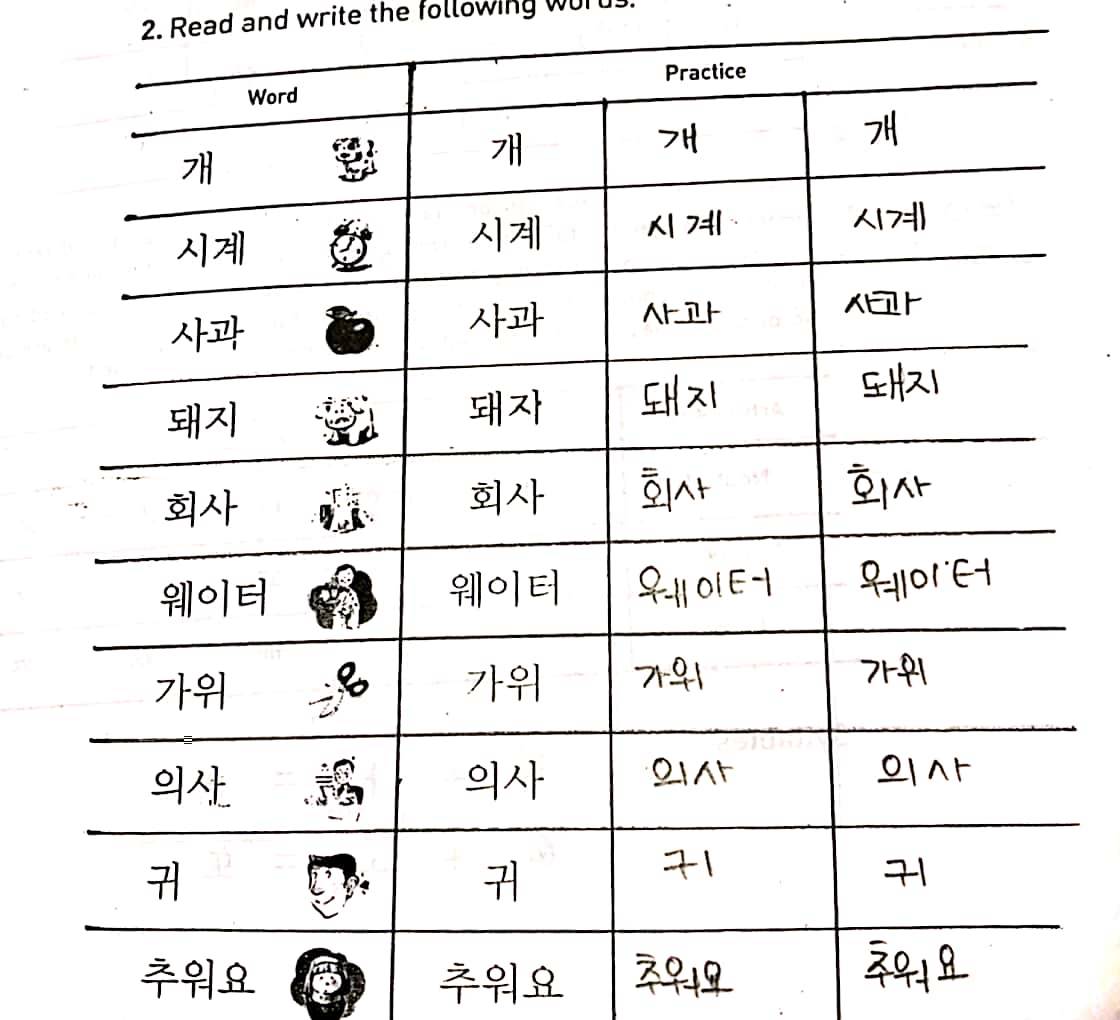 2. Read and write the following words.
Word Practice
개 개 개 개
시계 시계 시계 시계
사과 사과 사과 사과
돼지 돼자 돼지 돼지
회사 회사 회사 회사
웨이터 웨이터 웨이터 웨이터
가위 가위 가위 가위
의사 의사 의사 의사
귀 귀 귀 귀
추워요 추워요 추워요 추워요